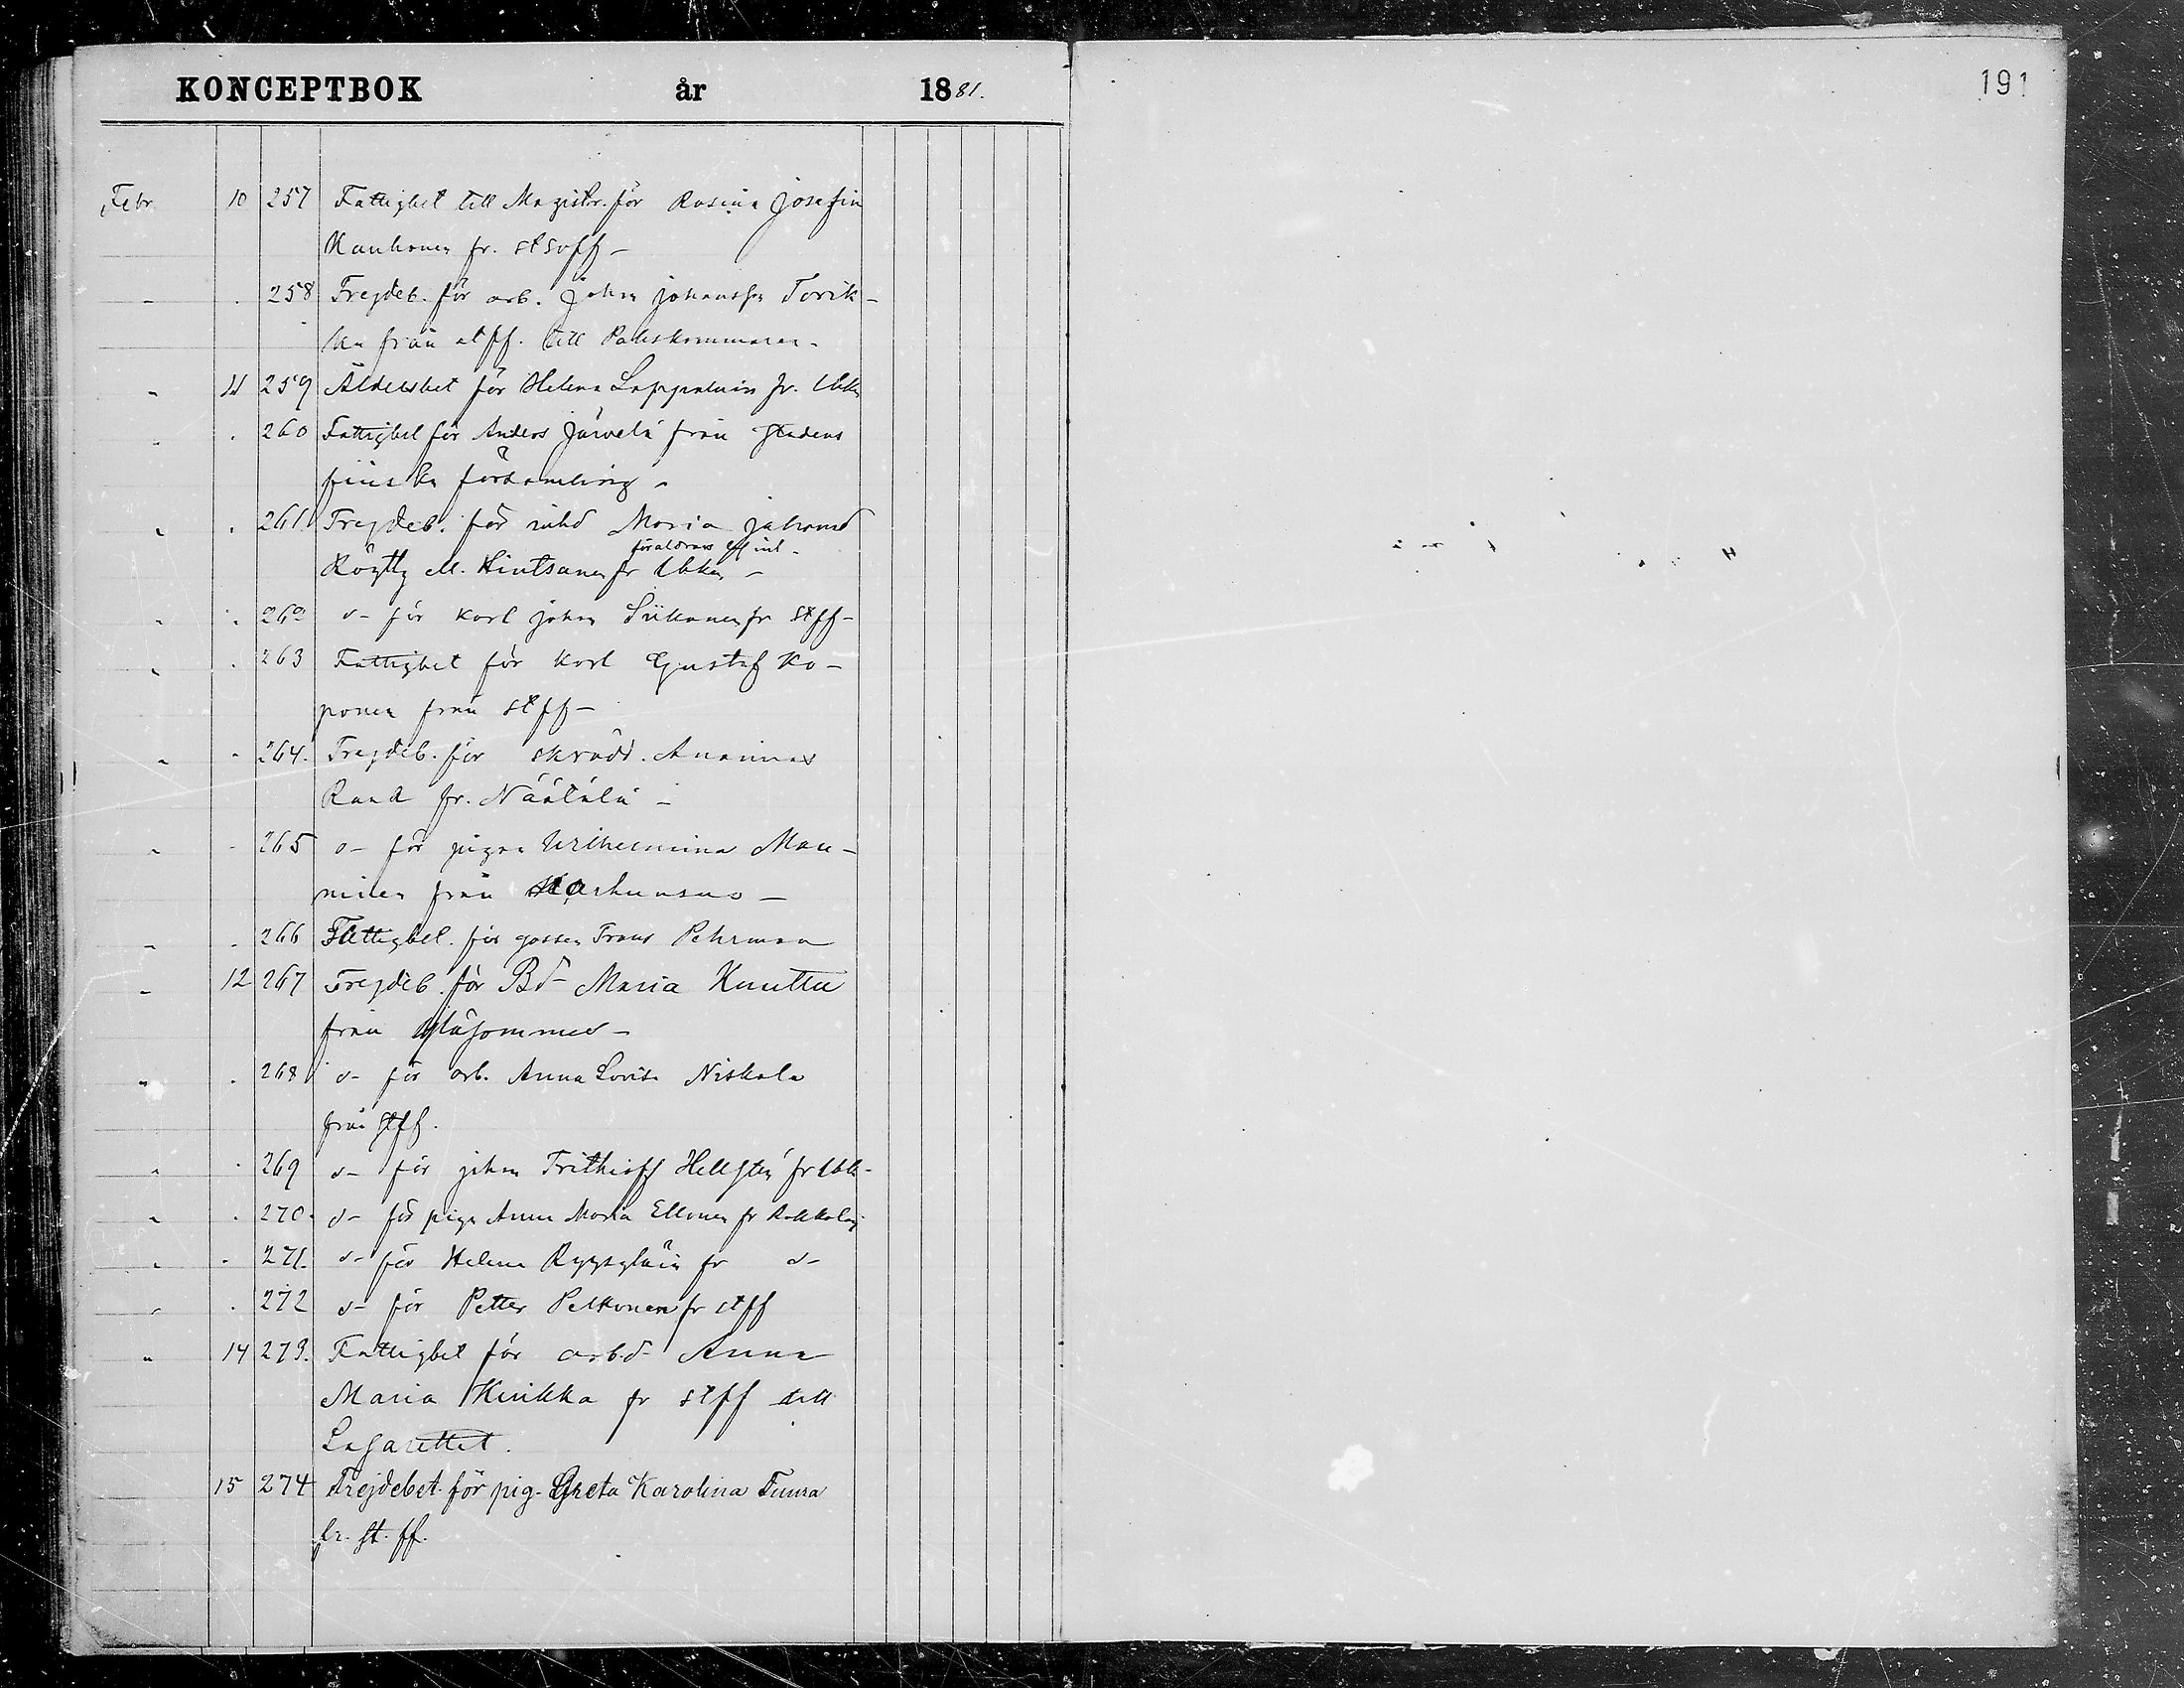 KONCEPTBOK år 1881.
191
Febr. 10 257 Fattigbet till Magistr. för Rosina Josefin
Kauhanen fr. stsoff -
" . 258 Frejdeb. för arb. Johan Johansson Torik-
ka från stff. till Poliskammaren.
" 11 259 Åldersbet för Helena Lappalain fr. Vbke
" . 260 Fattigbet för Anders Järvelä från Stadens
finska församling -
" . 261 Frejdeb. för inhd Maria Johansd
föräldrars
Röytty M. Hintsanen fr Vbke, -
" . 262 d- för Karl Johan Siikanen fr stff -
" . 263 Fattigbet för Karl Gustaf Ko-
ponen från stff -
" - 264. Frejdeb. för skrädd. Ananias
Rand fr. Näätälä -
" - 265 d- för pigan Wilhelmina Man-
ninen från Karhunsuo -
" . 266 Fattigbet. för gossen Frans Pehrman
" 12 267 Frejdeb. för Bd- Maria Knuttu
från Yläsommee -
" . 268 d- för arb. Anna Lovisa Niskala
från stff.
" . 269 d- för Johan Frithioff Hellsten fr Vbk-
" . 270. d- för piga Anna Maria Ellonen fr Kakkolaj
" - 271. d- för Helena Ryypyläin fr d-
" . 272 d- för Petter Pelkonen fr stff
" 14 273. Fattigbet för arb.d- Anna
Maria Kiukka fr stff till
Lasarettet.
15 274 Frejdebet. för pig. Greta Karolina Tuura
fr. st. ff.